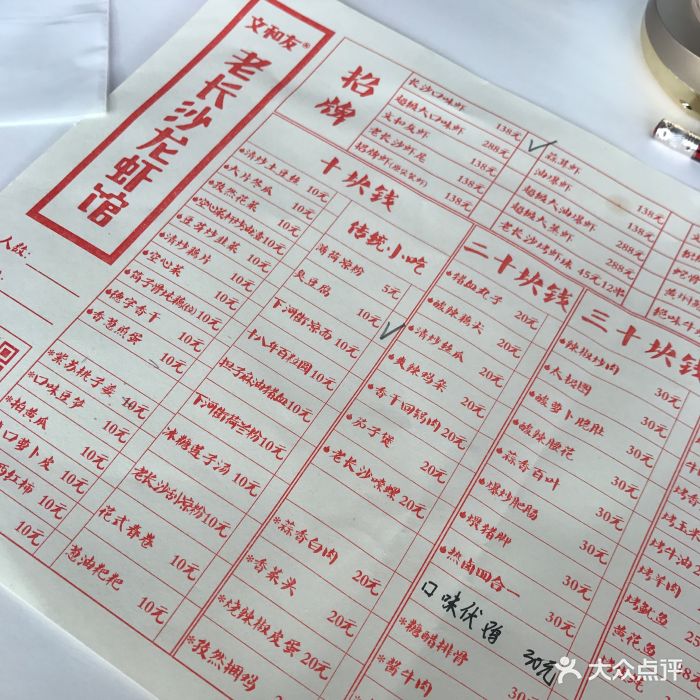 文和友®
老长沙龙虾馆
人数:
招牌
长沙口味虾 138元
超级大口味虾 288元
文和友虾 138元
老长沙虾尾 138元
138元
蒜蓉虾 138元
油爆虾 138元
超级大油爆虾 288元
超级大蒸虾 288元
老长沙烤虾球 45元12串
十块钱
清炒土豆丝 10元
大片冬瓜 10元
孜然花菜 10元
10元
豆芽炒韭菜 10元
清炒藕片 10元
空心菜 10元
10元
德字香干 10元
香葱煎蛋 10元
*紫苏桃子姜 10元
*口味豆笋 10元
*拍黄瓜 10元
口萝卜皮 10元
西红柿 10元
10元
传统小吃
薄荷凉粉 5元
臭豆腐 10元
下河街凉面 10元
十八年百粒圆 10元
担子麻油猪血 10元
下河街荷兰粉 10元
冰糖莲子汤 10元
老长沙刮凉粉 10元
花式春卷 10元
葱油粑粑 10元
二十块钱
猪血丸子 20元
酸辣藕尖 20元
清炒丝瓜 20元
爽辣鸡杂 20元
香干回锅肉 20元
茄子煲 20元
老长沙嗦螺 20元
*蒜香白肉 20元
*香菜头 20元
*烧辣椒皮蛋 20元
*孜然捆鸡 20元
三十块钱
辣椒炒肉 30元
大杂烩 30元
酸萝卜炒肚 30元
酸辣腰花 30元
蒜香百叶 30元
爆炒肥肠 30元
爆猪脚 30元
热卤四合一 30元
口味伏酒 30元
*糖醋排骨
*酱牛肉
烤玉米
烤牛油
烤羊肉
烤鱿鱼
黄花鱼
大众点评